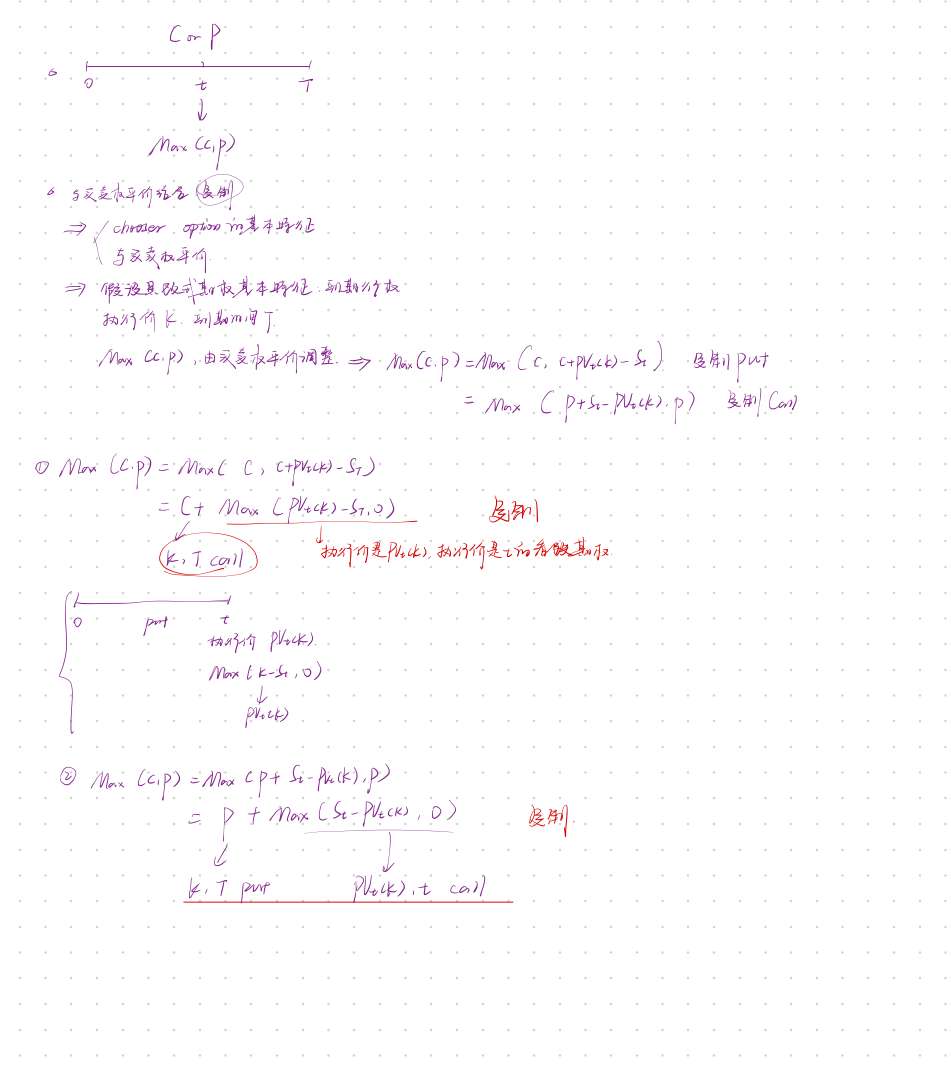 C or P
0 t T
↓
Max (C,P)
与买卖权平价结合 复制
⇒ chooser option的基本特征
与买卖权平价
⇒ 假设具欧式期权基本特征、到期行权
执行价K、到期时间T
Max (C,P),由买卖权平价调整 ⇒ Max(C,P)=Max (C, C+PVt(K)-St) 复制put
= Max (P+St-PVt(K),P) 复制Call
① Max (C,P)=Max( C, C+PVt(K)-ST)
= C+ Max (PVt(K)-ST,0) 复制
K, T call 执行价是PVt(K),执行价是t的看跌期权
0 put t
执行价 PVt(K)
Max(K-St,0)
↓
PVt(K)
② Max (C,P)=Max (P+St-PVt(K),P)
= P + Max (St-PVt(K), 0) 复制
K, T put PVt(K),t call